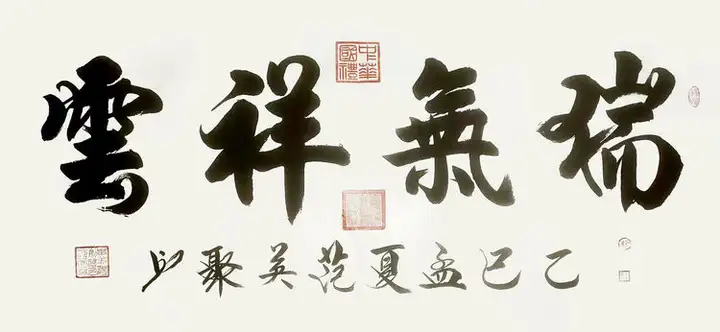 中華國禮
瑞氣祥雲
乙巳孟夏范英聚